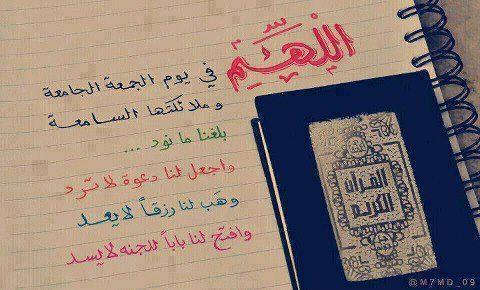 اللهم
في يوم الجمعة الجامعة
وملائكتها السامعة
بلغنا ما نود ...
واجعل لنا دعوة لا ترد
وهب لنا رزقاً لا يعد
وافتح لنا باباً للجنه لا يسد
القرآن
الكريم
@M7MD_09